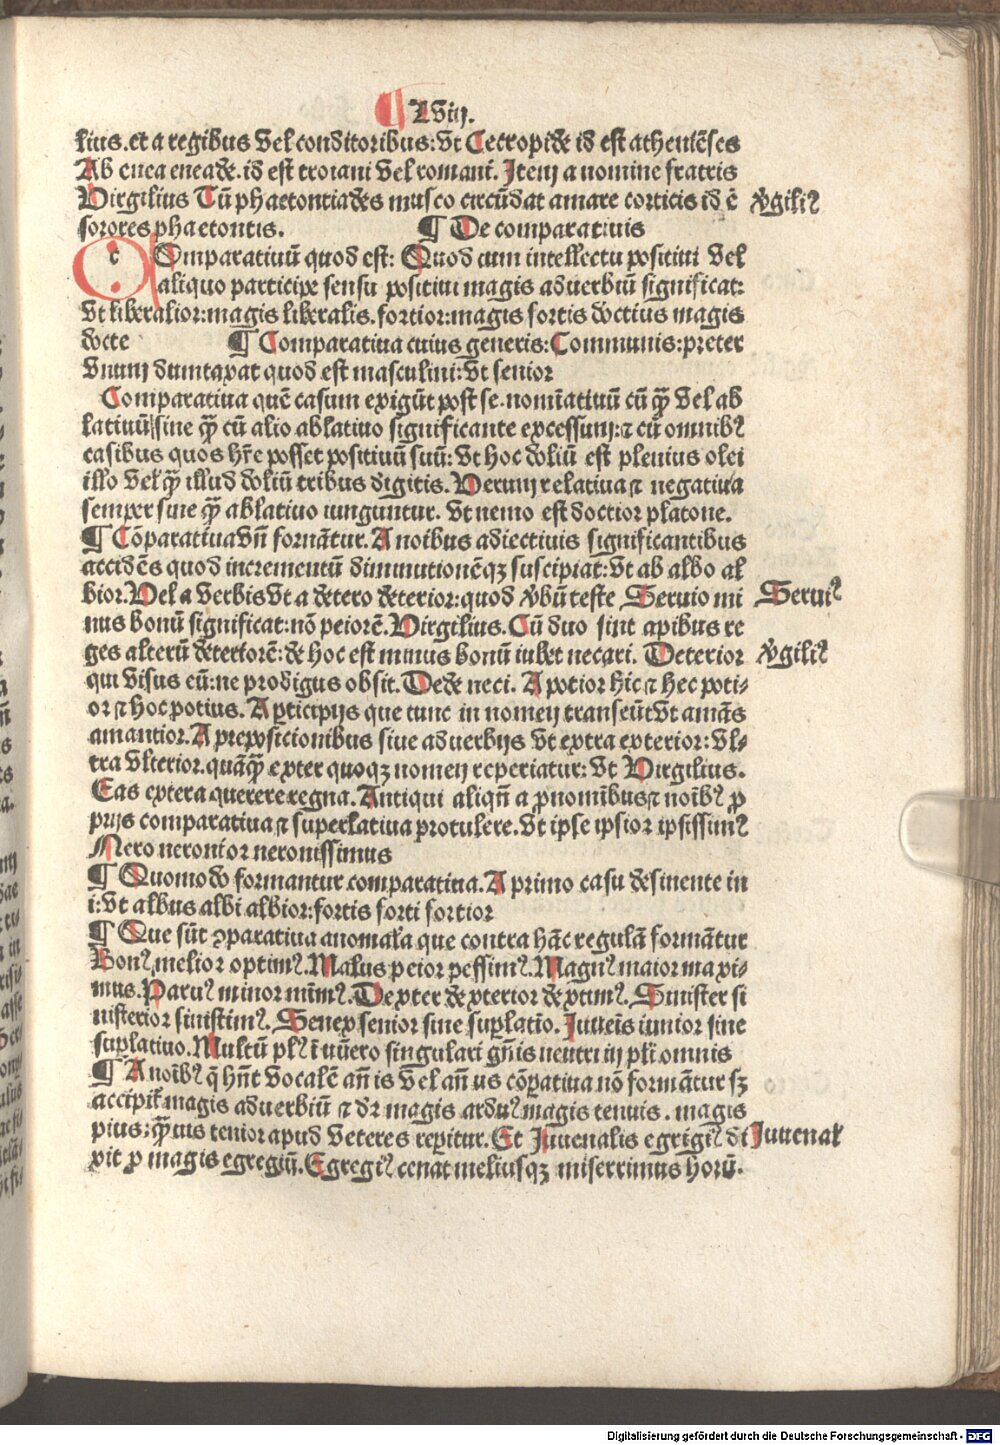 ¶ A viij.
lius. et a regibus vel conditoribus: vt Cecropide id est atheniēses
Ab enea eneade. id est troiani vel romani. Item a nomine fratris
Virgilius Tū phaetontiades musco circūdat amare corticis id ē
v̓giliꝰ
sorores phaetontis. ¶ De comparatiuis
COmparatiuū quod est: Quod cum intellectu positiui vel
aliquo participe sensu positiui magis aduerbiū significat:
vt liberalior: magis liberalis. fortior: magis fortis doctius magis
docte ¶ Comparatiua cuius generis: Communis: preter
vnum dumtaxat quod est masculini: vt senior
Comparatiua quē casum exigūt post se. nomīatiuū cū ꝙ̄ vel ab
latiuū sine ꝙ̄ cū alio ablatiuo significante excessum: ⁊ cū omnibꝰ
casibus quos hr̄e posset positiuū suū: vt hoc doliū est plenius olei
illo vel ꝙ̄ illud doliū tribus digitis. Verum relatiua ⁊ negatiua
semper sine ꝙ̄ ablatiuo iunguntur. vt nemo est doctior platone.
¶ Cōparatiua vn̄ formātur. A noībus adiectiuis significantibus
accidēs quod incrementū diminutionēqꝫ suscipiat: vt ab albo al
bior. Vel a verbis vt a detero deterior: quod v̓bū teste Seruio mi
Seruiꝰ
nus bonū significat: nō peiorē. Virgilius. Cū duo sint apibus re
ges alterū deteriorē: de hoc est minus bonū iubet necari. Deterior
v̓giliꝰ
qui visus eū: ne prodigus obsit. Dede neci. A potior hic ⁊ hec poti⸗
or ⁊ hoc potius. A ꝑticipijs que tunc in nomen transeūt vt amās
amantior. A preposicionibus siue aduerbijs vt extra exterior: vl⸗
tra vlterior. quāꝙ̄ exter quoqꝫ nomen reperiatur: vt Virgilius.
Eas extera querere regna. Antiqui aliqn̄ a ꝓnomībus ⁊ noībꝰ ꝓ
prijs comparatiua ⁊ superlatiua protulere. vt ipse ipsior ipsissimꝰ
Nero neronior neronissimus
¶ Quomodo formantur comparatiua. A primo casu desinente in
i: vt albus albi albior: fortis forti fortior
¶ Que sūt ꝯparatiua anomala que contra hāc regulā formātur
Bonꝰ melior optimꝰ. Malus peior pessimꝰ. Magnꝰ maior maxi⸗
mus. Paruꝰ minor mīmꝰ. Dexter dexterior dextimꝰ. Sinister si
nisterior sinistimꝰ. Senex senior sine suꝑlatiō. Iuuenis iunior sine
suꝑlatiuo. Multū plꝰ ī nūero singulari gn̄is neutri in pli omnis
¶ A noībꝰ q̄ hn̄t vocalē an̄ is vel an̄ us cōꝑatiua nō formātur sꝫ
accipiūt magis aduerbiū ⁊ dr̄ magis arduꝰ magis tenuis. magis
pius: ꝙ̄uis tenior apud veteres reꝑitur. Et Iuuenalis egrigiꝰ di
Iuuenal
xit ꝓ magis egregiū. Egregiꝰ cenat meliusqꝫ miserrimus horū.
Digitalisierung gefördert durch die Deutsche Forschungsgemeinschaft - DFG